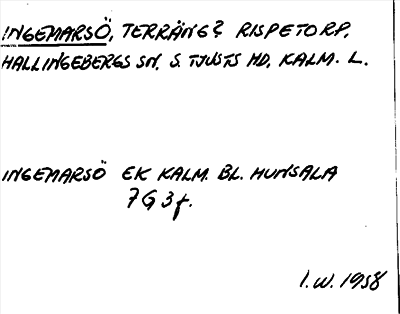 INGEMARSÖ, TERRÄNG? RISPETORP,
HALLINGEBERGS SN, S. TJUSTS HD, KALM. L.
INGEMARSÖ EK KALM. BL. HUNSALA
7G3f.
I.W. 1958